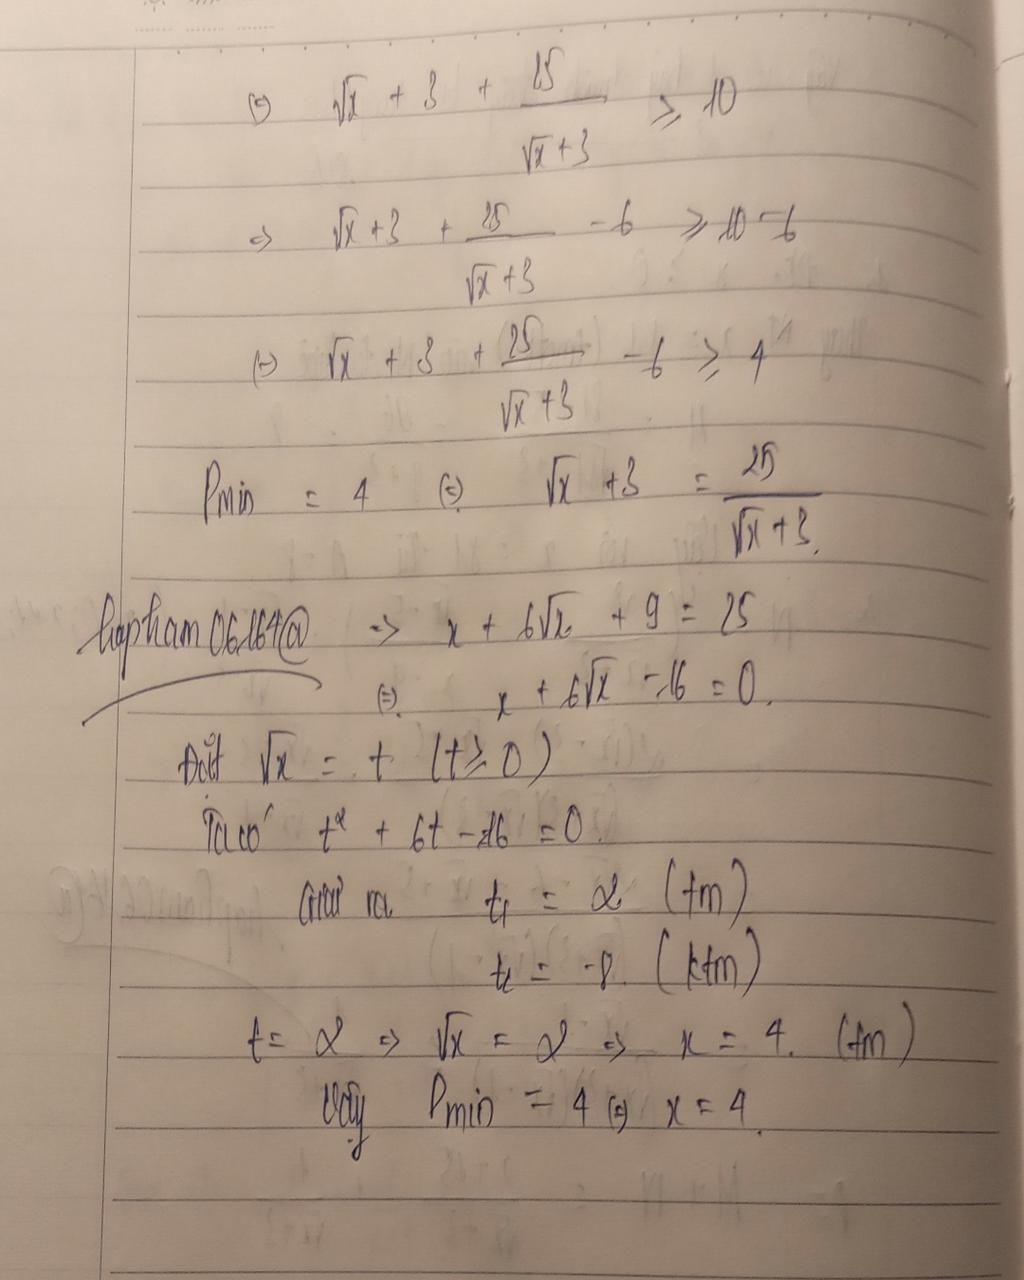 (=) √x + 3 + 25/(√x+3) ≥ 10
=> √x+3 + 25/(√x+3) - 6 ≥ 10-6
(=) √x + 3 + 25/(√x+3) - 6 ≥ 4
Pmin = 4 (=) √x +3 = 25/(√x+3).
hapham06164@ => x + 6√x + 9 = 25
(=). x + 6√x - 16 = 0.
Đặt √x = t (t≥0)
Ta có t² + 6t - 16 = 0.
Giải ra t₁ = 2 (tm)
t₂ = -8. (ktm)
t = 2 => √x = 2 => x = 4. (tm)
Vậy Pmin = 4 (=) x = 4.